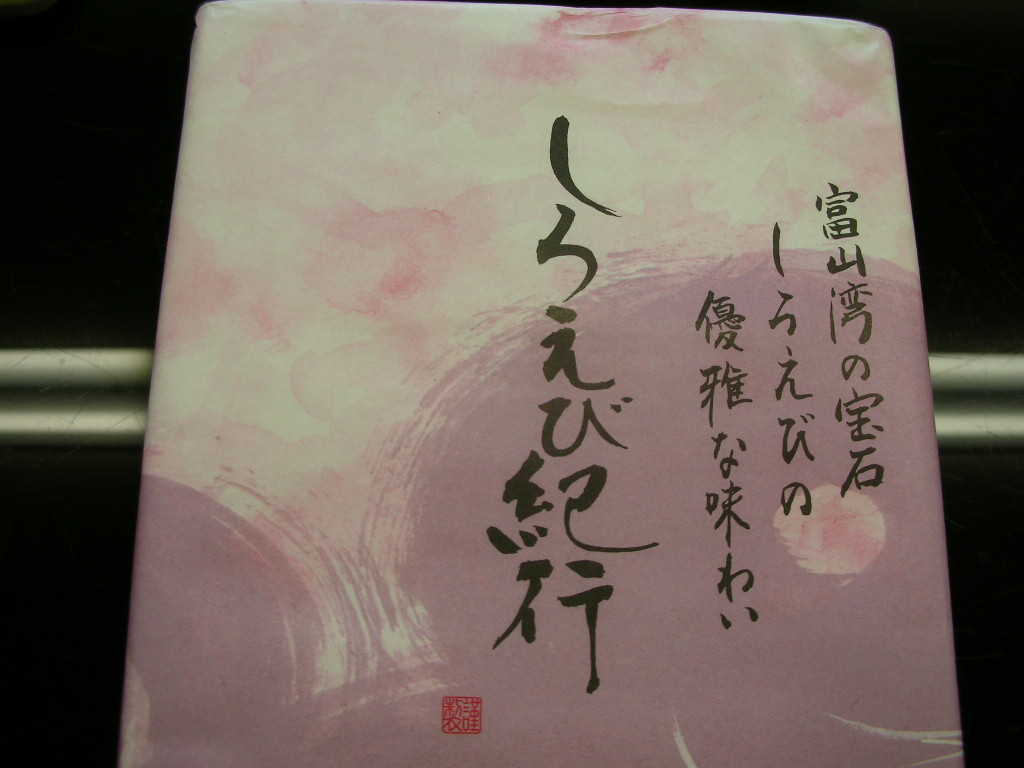 富山湾の宝石
しろえびの
優雅な味わい
しろえび紀行
謹製